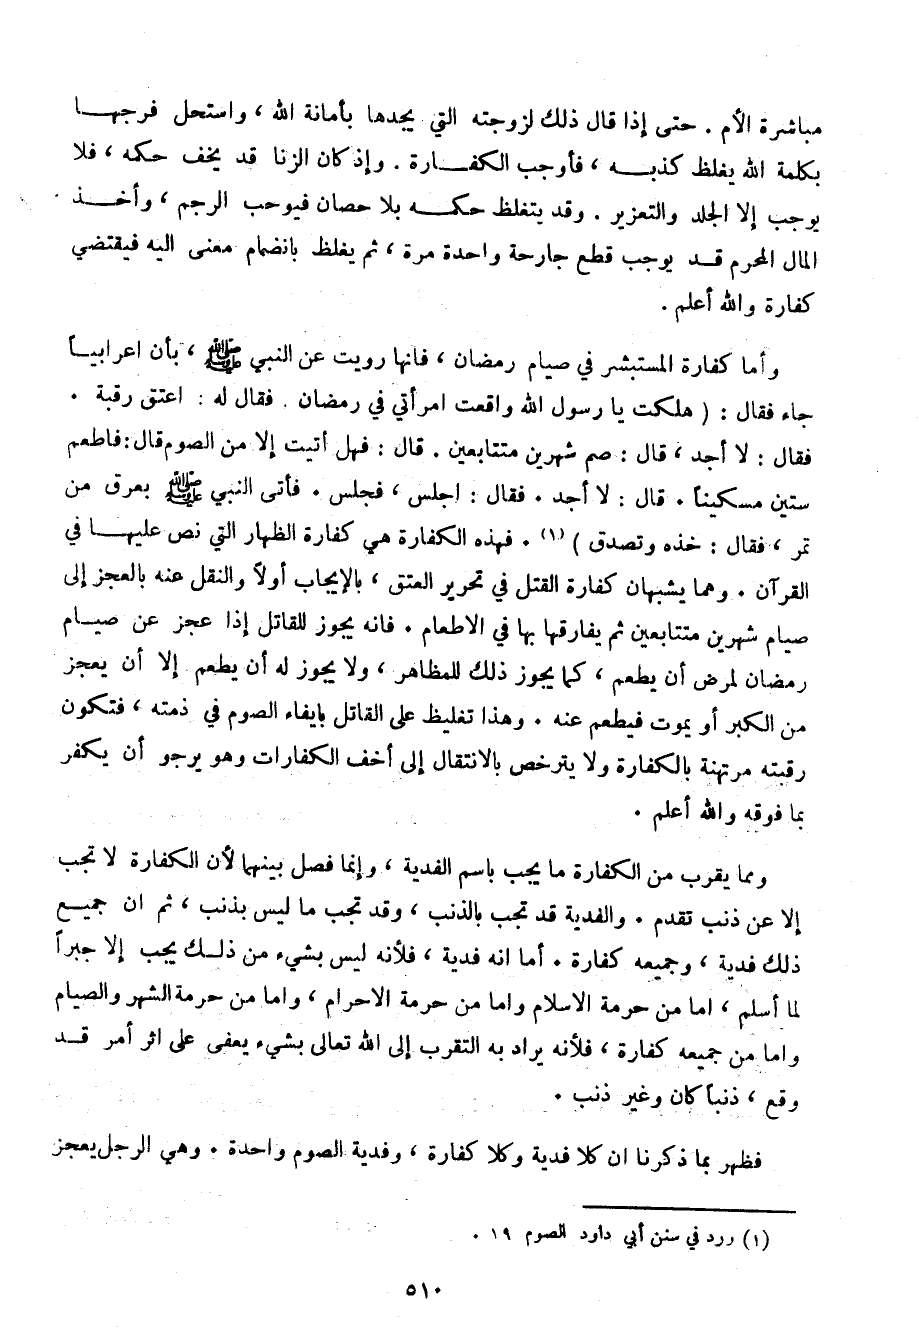 مباشرة الأم . حتى إذا قال ذلك لزوجته التي يجدها بأمانة الله ، واستحل فرجهـــا
بكلمة الله يغلظ كذبـــه ، فأوجب الكفـــارة . وإذ كان الزنا قد يخف حكمه ، فلا
يوجب إلا الجلد والتعزير . وقد يتغلظ حكمـــه بلا حصان فيوحب الرجم ، وأخـــذ
المال المحرم قـــد يوجب قطع جارحة واحدة مرة ، ثم يغلظ بانضمام معنى اليه فيقتضي
كفارة والله أعلم .
وأما كفارة المستبشر في صيام رمضان ، فانها رويت عن النبي ﷺ ، بأن اعرابيـــاً
جاء فقال : ( هلكت يا رسول الله واقعت امرأتي في رمضان . فقال له : اعتق رقبة .
فقال : لا أجد ، قال : صم شهرين متتابعين . قال : فهل أتيت إلا من الصوم قال: فاطعم
ستين مسكيناً . قال : لا أجد . فقال : اجلس ، فجلس . فأتى النبي ﷺ بعرق من
تمر ، فقال : خذه وتصدق ) (١) . فهذه الكفارة هي كفارة الظهار التي نص عليهـــا في
القرآن . وهما يشبهان كفارة القتل في تحرير العتق ، بالإيجاب أولاً والنقل عنه بالعجز إلى
صيام شهرين متتابعين ثم يفارقها بها في الاطعام . فانه يجوز للقاتل إذا عجز عن صيـــام
رمضان لمرض أن يطعم ، كما يجوز ذلك للمظاهر ، ولا يجوز له أن يطعم إلا أن يعجز
من الكبر أو يموت فيطعم عنه . وهذا تغليظ على القاتل بإيفاء الصوم في ذمته ، فتكون
رقبته مرتهنة بالكفارة ولا يترخص بالانتقال إلى أخف الكفارات وهو يرجو أن يكفر
بما فوقه والله أعلم .
ومما يقرب من الكفارة ما يجب باسم الفدية ، وإنما فصل بينهما لأن الكفارة لا تجب
إلا عن ذنب تقدم . والفدية قد تجب بالذنب ، وقد تجب ما ليس بذنب ، ثم ان جميـــع
ذلك فدية ، وجميعه كفارة . أما انه فدية ، فلأنه ليس بشيء من ذلـــك يجب إلا جبراً
لما أسلم ، اما من حرمة الاسلام واما من حرمة الاحرام ، واما من حرمة الشهر والصيام
واما من جميعه كفارة ، فلأنه يراد به التقرب إلى الله تعالى بشيء يعفى على اثر أمر قـــد
وقع ، ذنباً كان وغير ذنب .
فظهر بما ذكرنا ان كلا فدية وكلا كفارة ، وفدية الصوم واحدة . وهي الرجل يعجز
(١) ررد في سنن أبي داود الصوم ١٩ .
٥١٠